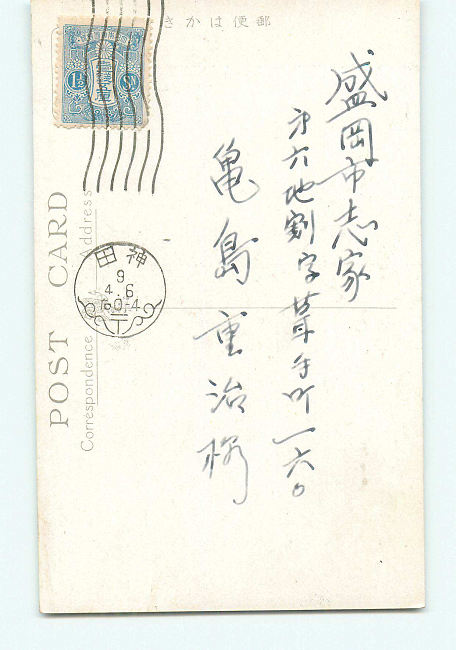 郵便はかき
盛岡市志家
第六地割字茸手町一六〇
亀島重治様
1½ 1½
神田
9
4.6
后0-4
POST CARD
Correspondence
Address